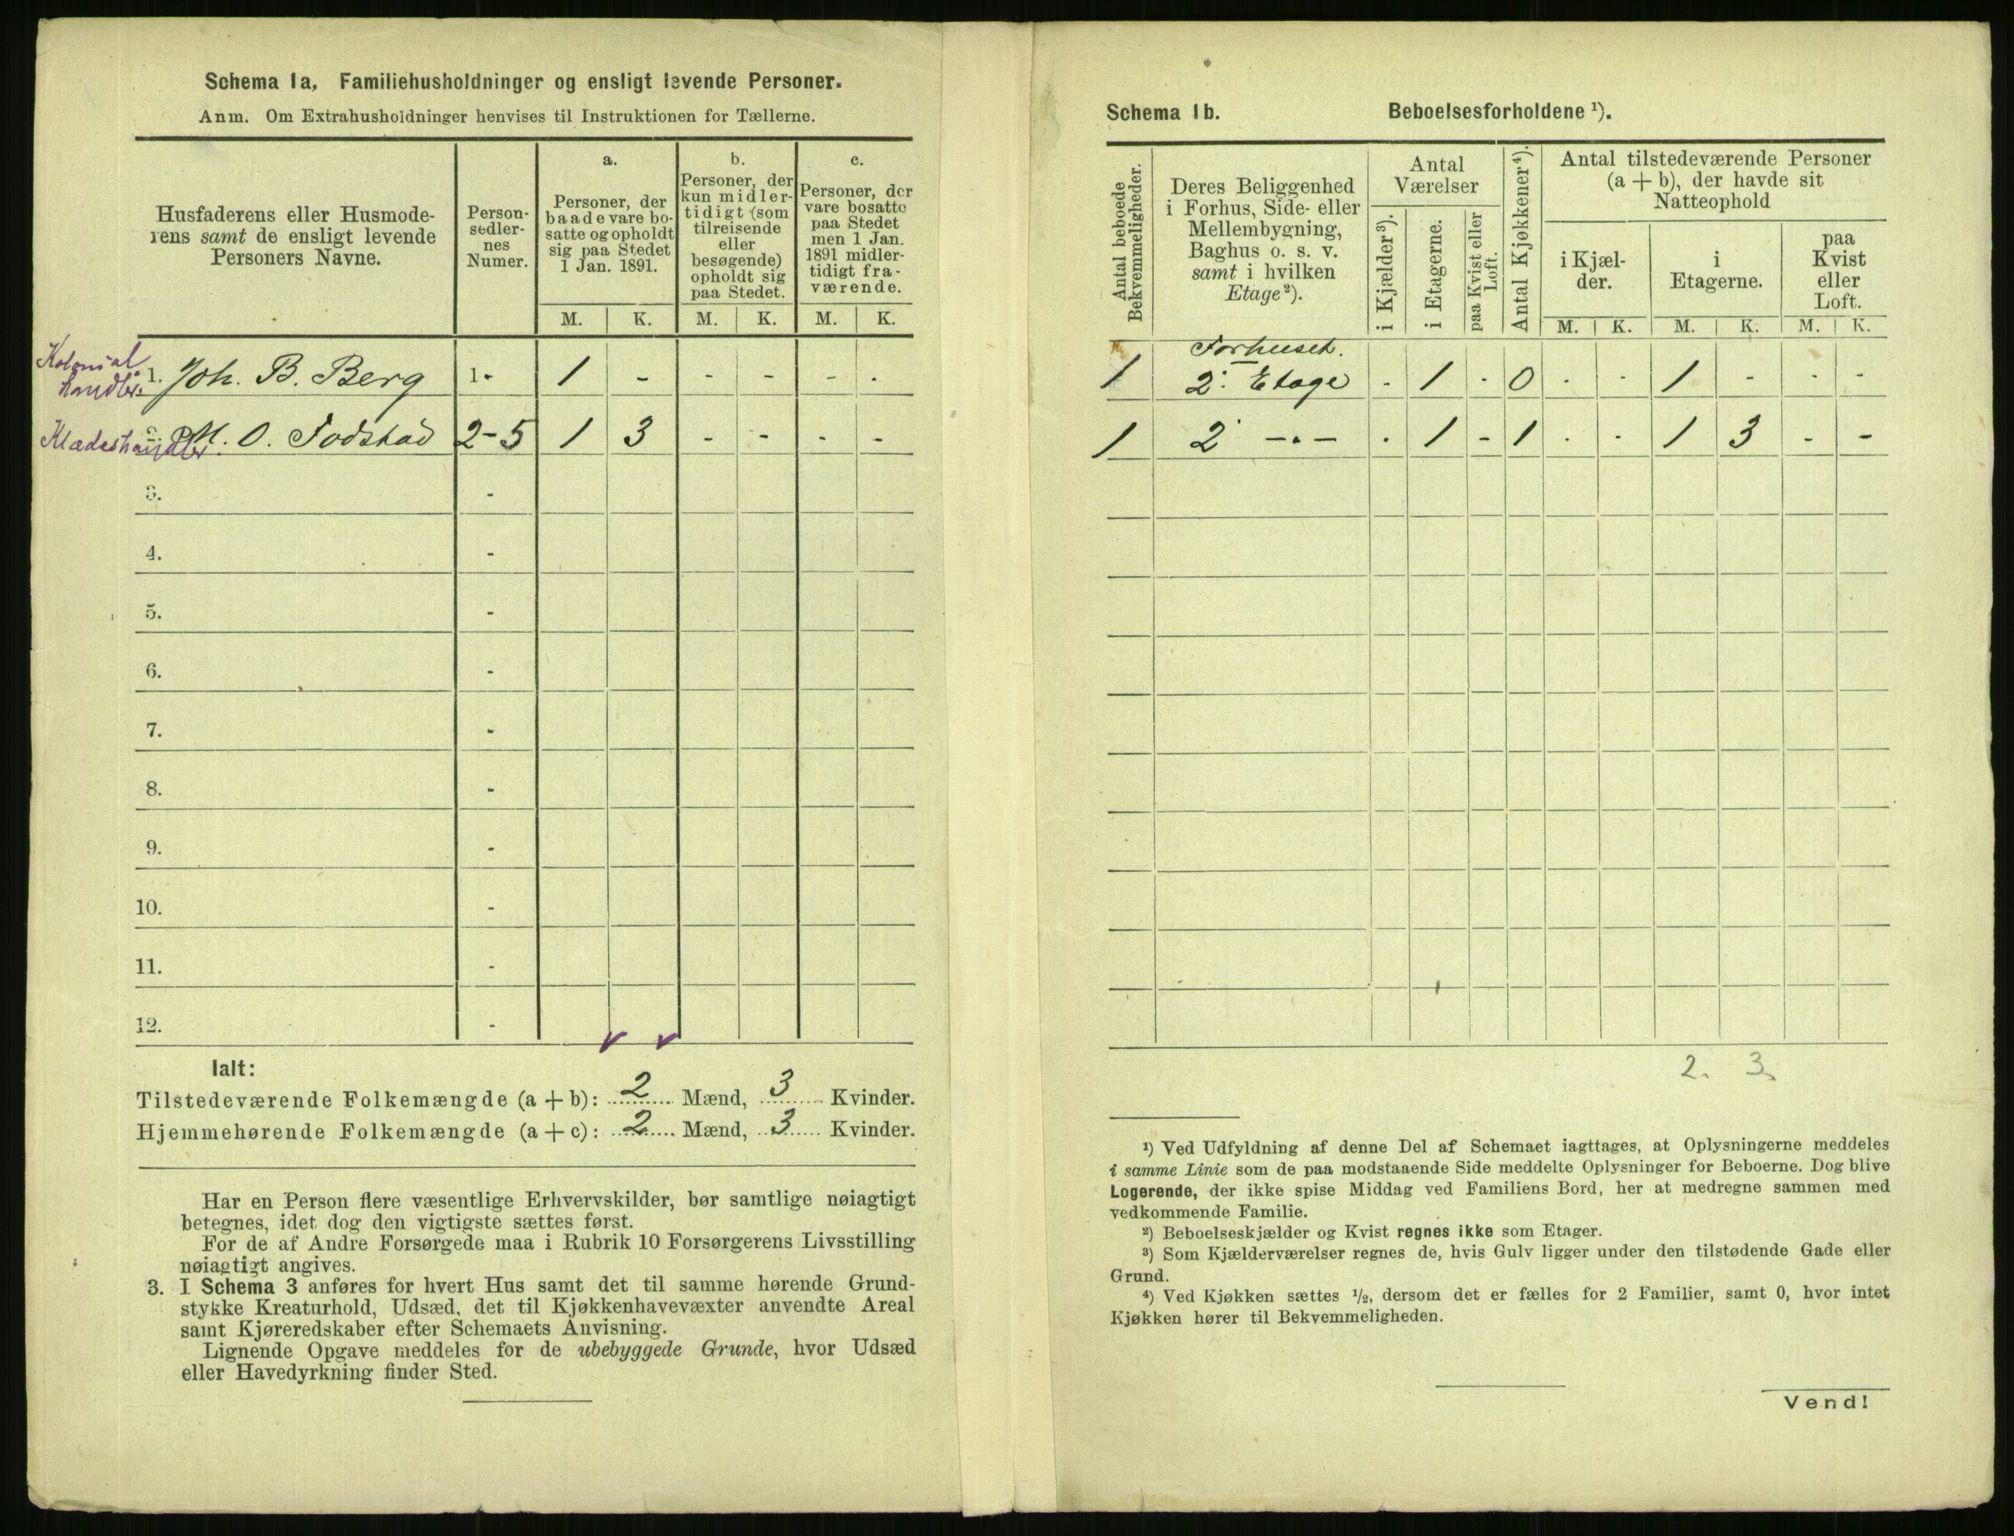 Schema 1a, Familiehusholdninger og ensligt levende Personer.
Anm. Om Extrahusholdninger henvises til Instruktionen for Tællerne.
Husfaderens eller Husmode-
rens samt de ensligt levende
Personers Navne.
Person-
sedler-
nes
Numer.
a.
Personer, der
baade vare bo-
satte og opholdt
sig paa Stedet
1 Jan. 1891.
b.
Personer, der
kun midler-
tidigt (som
tilreisende
eller
besøgende)
opholdt sig
paa Stedet.
c.
Personer, der
vare bosatte
paa Stedet
men 1 Jan.
1891 midler-
tidigt fra-
værende.
M. K. M. K. M. K.
Kolonial
handler
1. Joh. B. Berg 1 - 1 - - - - -
Klædeshandler.
2. M. O. Fodstad 2 - 5 1 3 - - - -
3. -
4. -
5. -
6. -
7. -
8. -
9. -
10. -
11. -
12. -
Ialt:
Tilstedeværende Folkemængde (a + b): 2 Mænd, 3 Kvinder.
Hjemmehørende Folkemængde (a + c): 2 Mænd, 3 Kvinder.
Har en Person flere væsentlige Erhvervskilder, bør samtlige nøiagtigt
betegnes, idet dog den vigtigste sættes først.
For de af Andre Forsørgede maa i Rubrik 10 Forsørgerens Livsstilling
nøiagtigt angives.
3. I Schema 3 anføres for hvert Hus samt det til samme hørende Grund-
stykke Kreaturhold, Udsæd, det til Kjøkkenhavevæxter anvendte Areal
samt Kjøreredskaber efter Schemaets Anvisning.
Lignende Opgave meddeles for de ubebyggede Grunde, hvor Udsæd
eller Havedyrkning finder Sted.
Schema 1b. Beboelsesforholdene ¹).
Antal beboede
Bekvemmeligheder.
Deres Beliggenhed
i Forhus, Side- eller
Mellembygning,
Baghus o. s. v.
samt i hvilken
Etage²).
Antal
Værelser
i Kjælder³).
i Etagerne.
paa Kvist eller
Loft.
Antal Kjøkkener⁴).
Antal tilstedeværende Personer
(a + b), der havde sit
Natteophold
i Kjæl-
der.
i
Etagerne.
paa
Kvist
eller
Loft.
M. K. M. K. M. K.
Forhuset.
1 2. Etage - 1 - 0 - - 1 - - -
1 2 -"- - 1 - 1 - - 1 3 - -
2. 3.
¹) Ved Udfyldning af denne Del af Schemaet iagttages, at Oplysningerne meddeles
i samme Linie som de paa modstaaende Side meddelte Oplysninger for Beboerne. Dog blive
Logerende, der ikke spise Middag ved Familiens Bord, her at medregne sammen med
vedkommende Familie.
²) Beboelseskjælder og Kvist regnes ikke som Etager.
³) Som Kjælderværelser regnes de, hvis Gulv ligger under den tilstødende Gade eller
Grund.
⁴) Ved Kjøkken sættes ¹/₂, dersom det er fælles for 2 Familier, samt 0, hvor intet
Kjøkken hører til Bekvemmeligheden.
Vend!